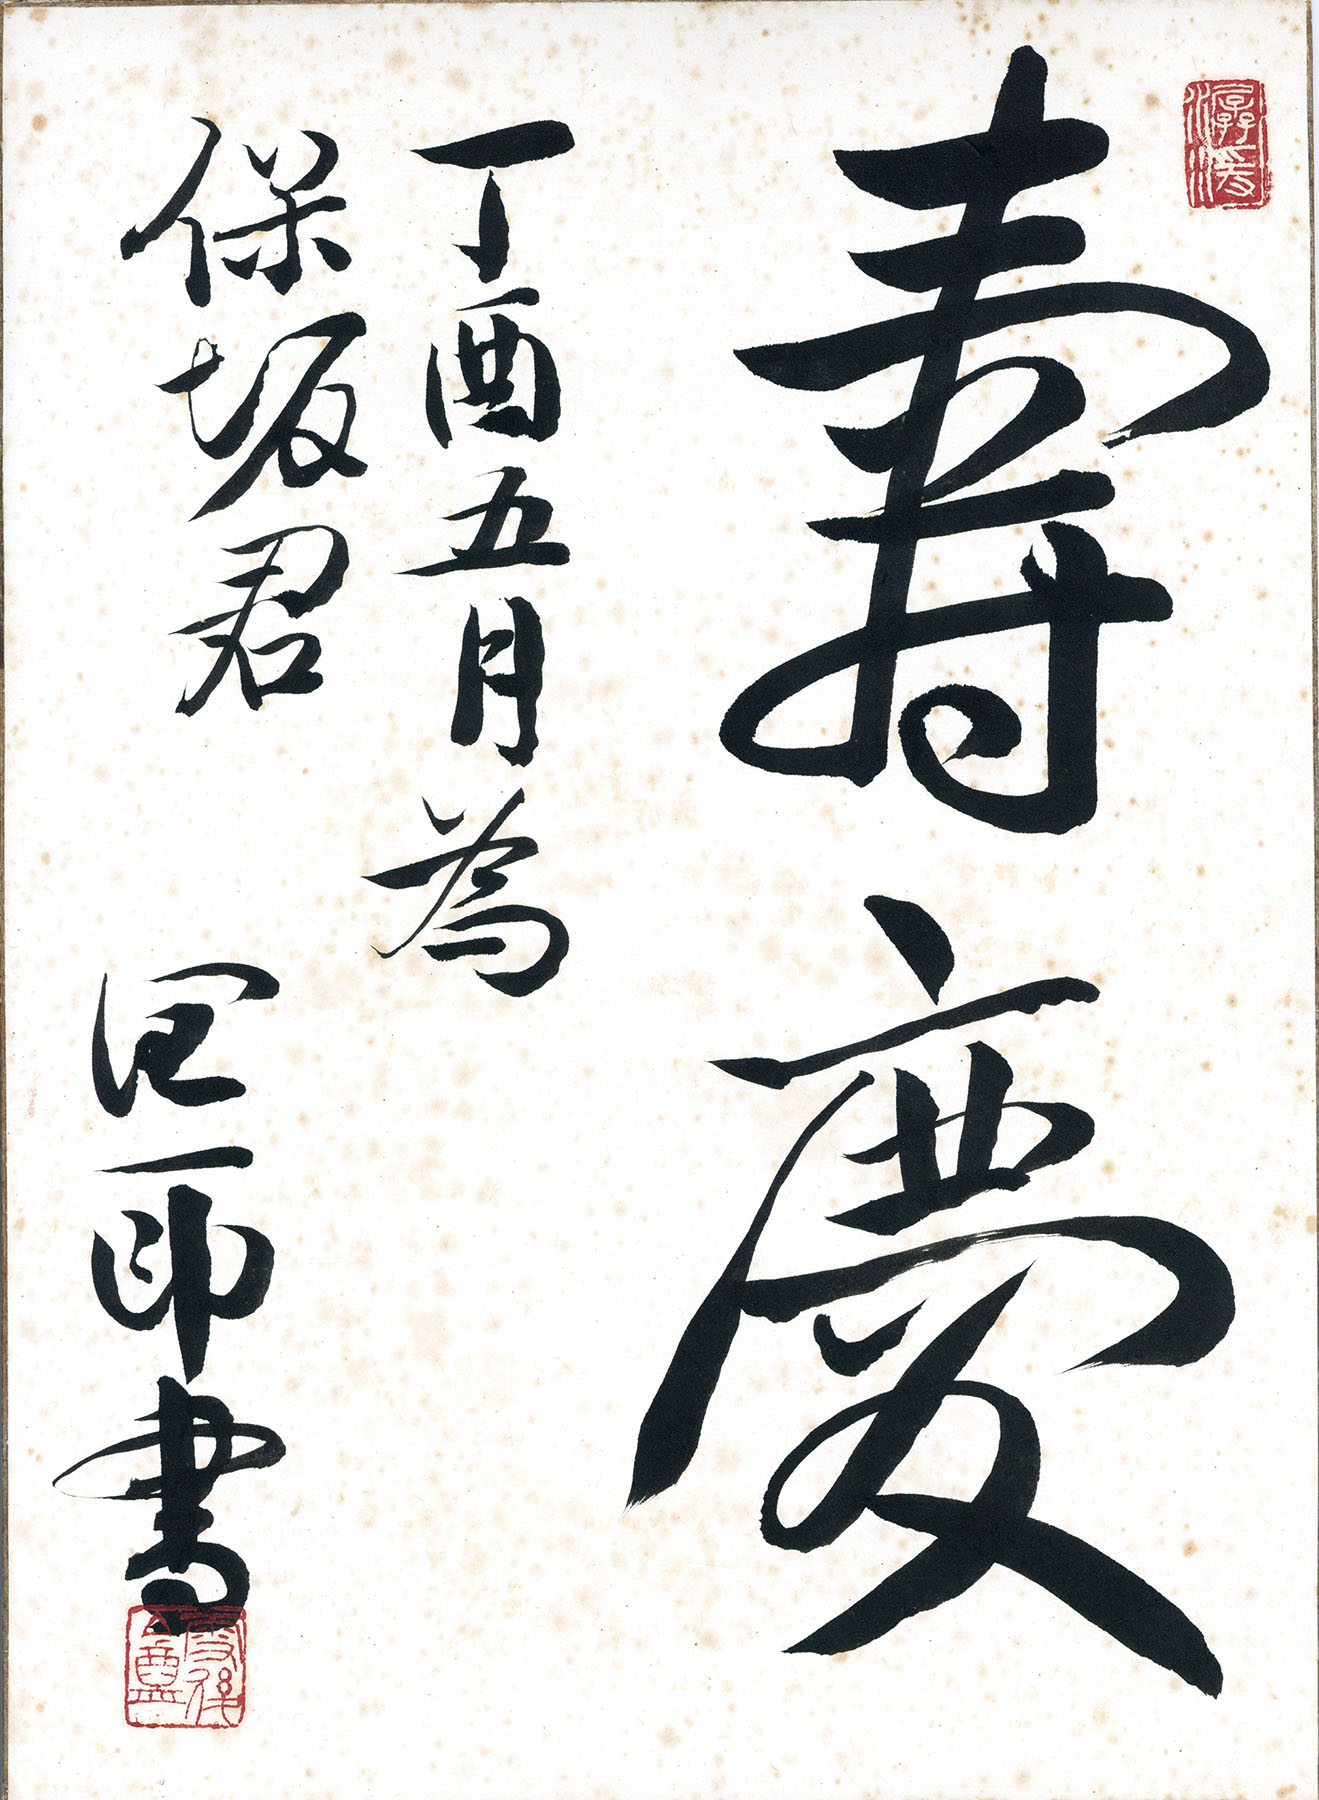 壽慶
丁酉五月為
保坂君
一印書